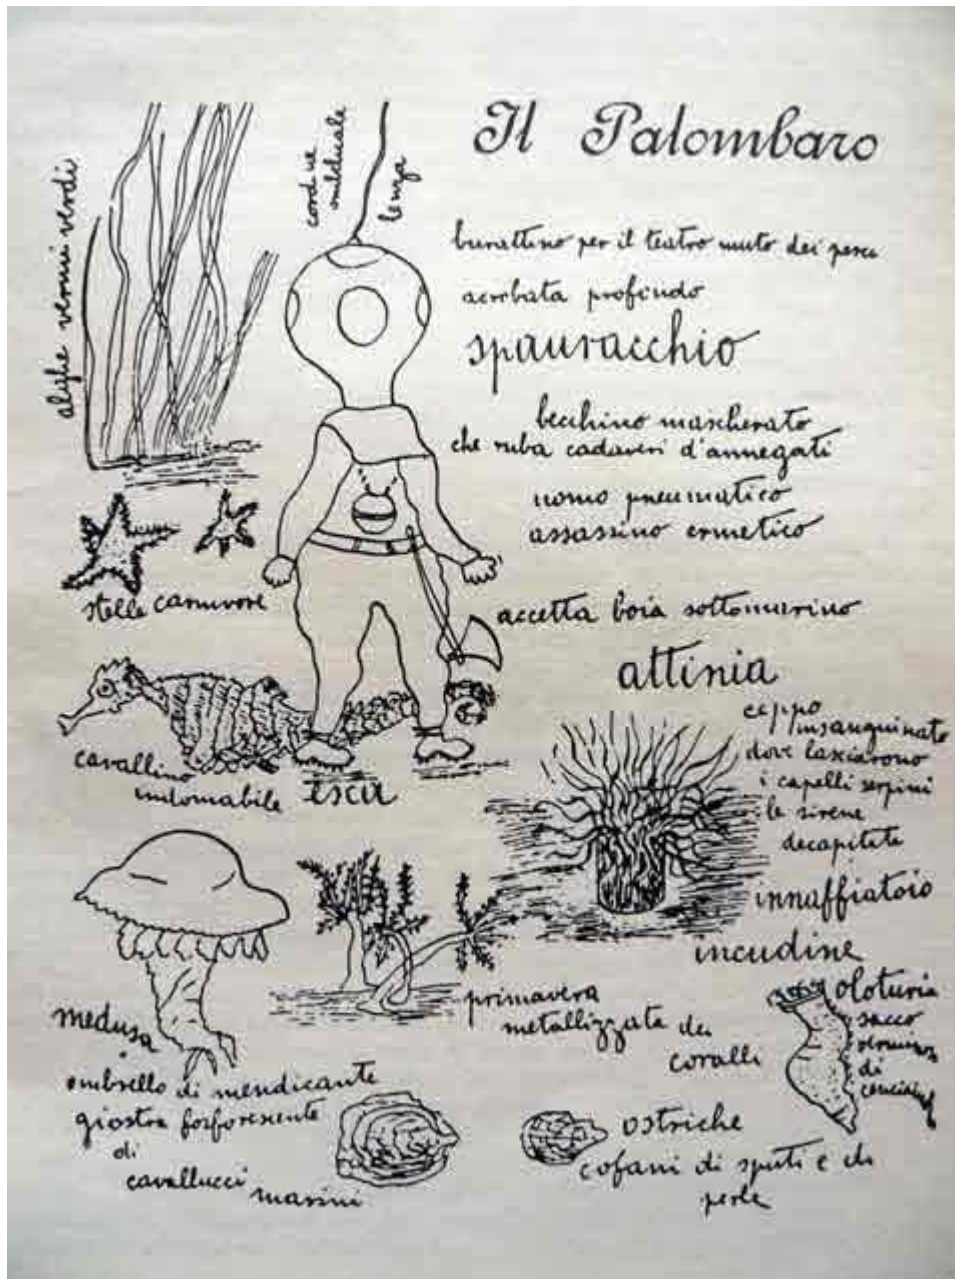 Il Palombaro
alghe vermi verdi
cordone
lenza
burattino per il teatro muto dei pesci
acrobata profondo
spauracchio
becchino mascherato
che ruba cadaveri d'annegati
uomo pneumatico
assassino ermetico
stelle carnivore
accetta boia sottomarino
attinia
ceppo
insanguinato
dove lasciarono
i capelli serpini
le sirene
decapitate
cavallino
indomabile
esca
innaffiatoio
incudine
medusa
ombrello di mendicante
giostra fosforescente
di
cavallucci
marini
primavera
metallizzata dei
coralli
oloturia
sacco
di
ostriche
cofani di sputi e di
perle